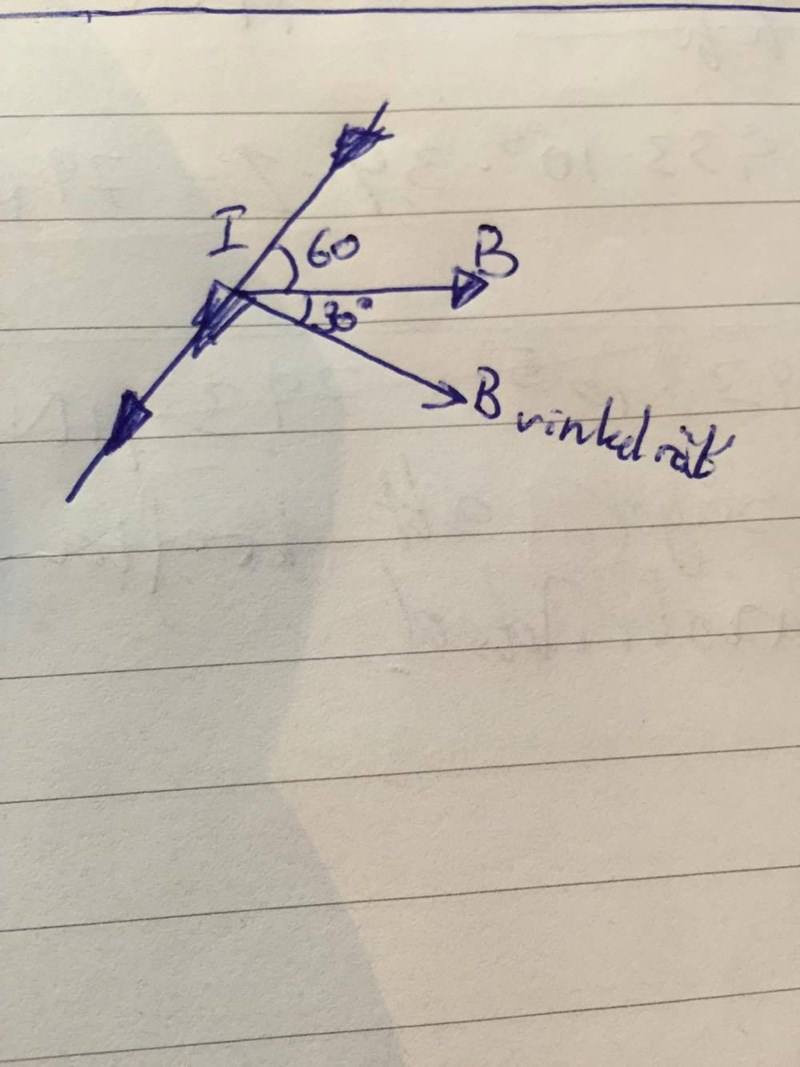 I
60
B
30°
B vinkelrät